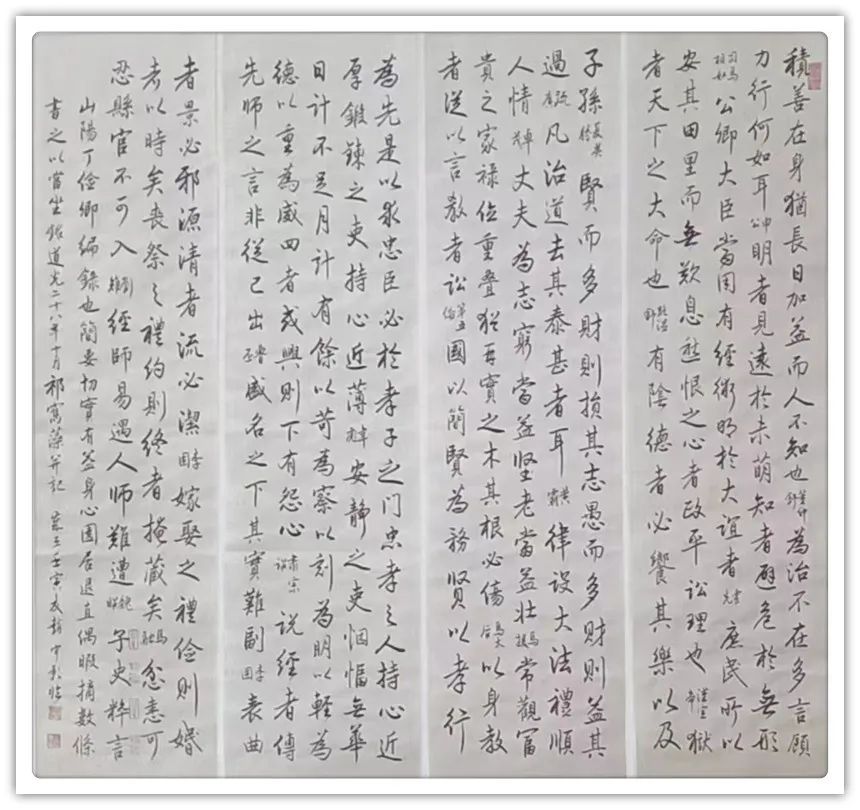 積善在身猶長日加益而人不知也董仲舒為治不在多言顧
力行何如耳申公明者見遠於未萌知者避危於無形
司馬相如公卿大臣當用有經術明於大誼者庶民所以
安其田里而無歎息愁恨之心者政平訟理也漢宣帝獄
者天下之大命也路溫舒有陰德者必饗其樂以及
子孫夏侯勝賢而多財則損其志愚而多財則益其
過疏廣凡治道去其泰甚者耳黃霸律設大法禮順
人情卓茂丈夫為志窮當益堅老當益壯馬援常觀富
貴之家祿位重疊猶再實之木其根必傷馬后以身教
者從以言教者訟第五倫國以簡賢為務賢以孝行
為先是以求忠臣必於孝子之門忠孝之人持心近
厚鍛鍊之吏持心近薄韋彪安靜之吏悃愊無華
日計不足月計有餘以苛為察以刻為明以輕為
德以重為威四者或興則下有怨心肅宗詔說經者傳
先師之言非從己出魯丕盛名之下其實難副李固表曲
者景必邪源清者流必潔李固嫁娶之禮儉則婚
者以時矣喪祭之禮約則終者掩藏矣馬融忿恚可
忍縣官不可入劉矩經師易遇人師難遭魏昭子史粹言
山陽丁儉卿編錄也簡要切實有益身心園居退直偶暇摘數條
書之以當坐銘道光二十八年十月祁寯藻并記 壬寅 臨